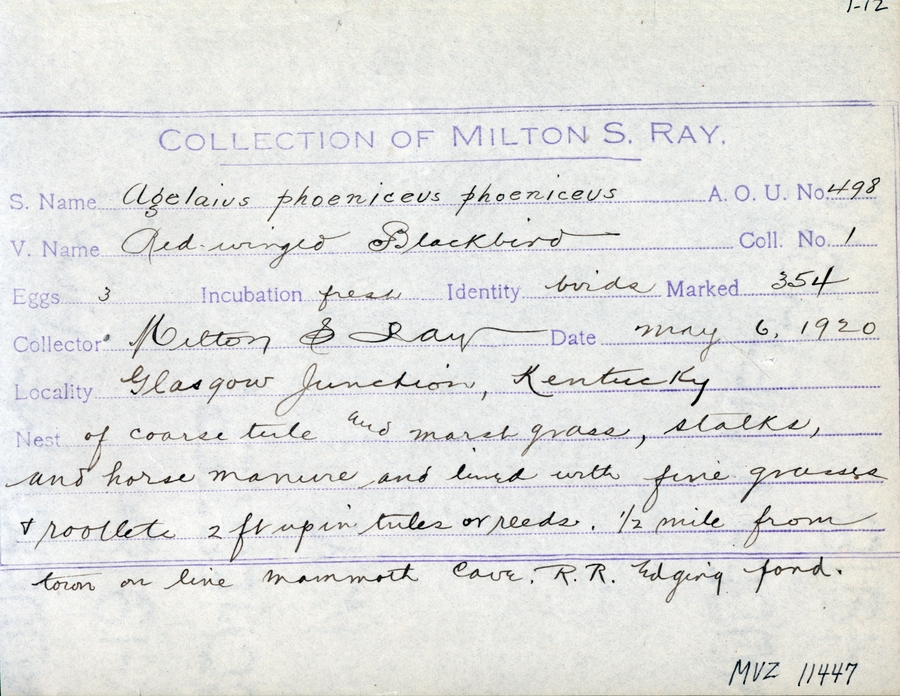 1-12
COLLECTION OF MILTON S. RAY.
S. Name Agelaius phoeniceus phoeniceus A. O. U. No. 498
V. Name Red-winged Blackbird Coll. No. 1
Eggs 3 Incubation fresh Identity birds Marked 354
Collector Milton S Ray Date May 6, 1920
Locality Glasgow Junction, Kentucky
Nest of coarse tule and marsh grass, stalks,
and horse manure and lined with fine grasses
& rootlets 2 ft up in tules or reeds. 1/2 mile from
town on line Mammoth Cave. R. R. Edging pond.
MVZ 11447